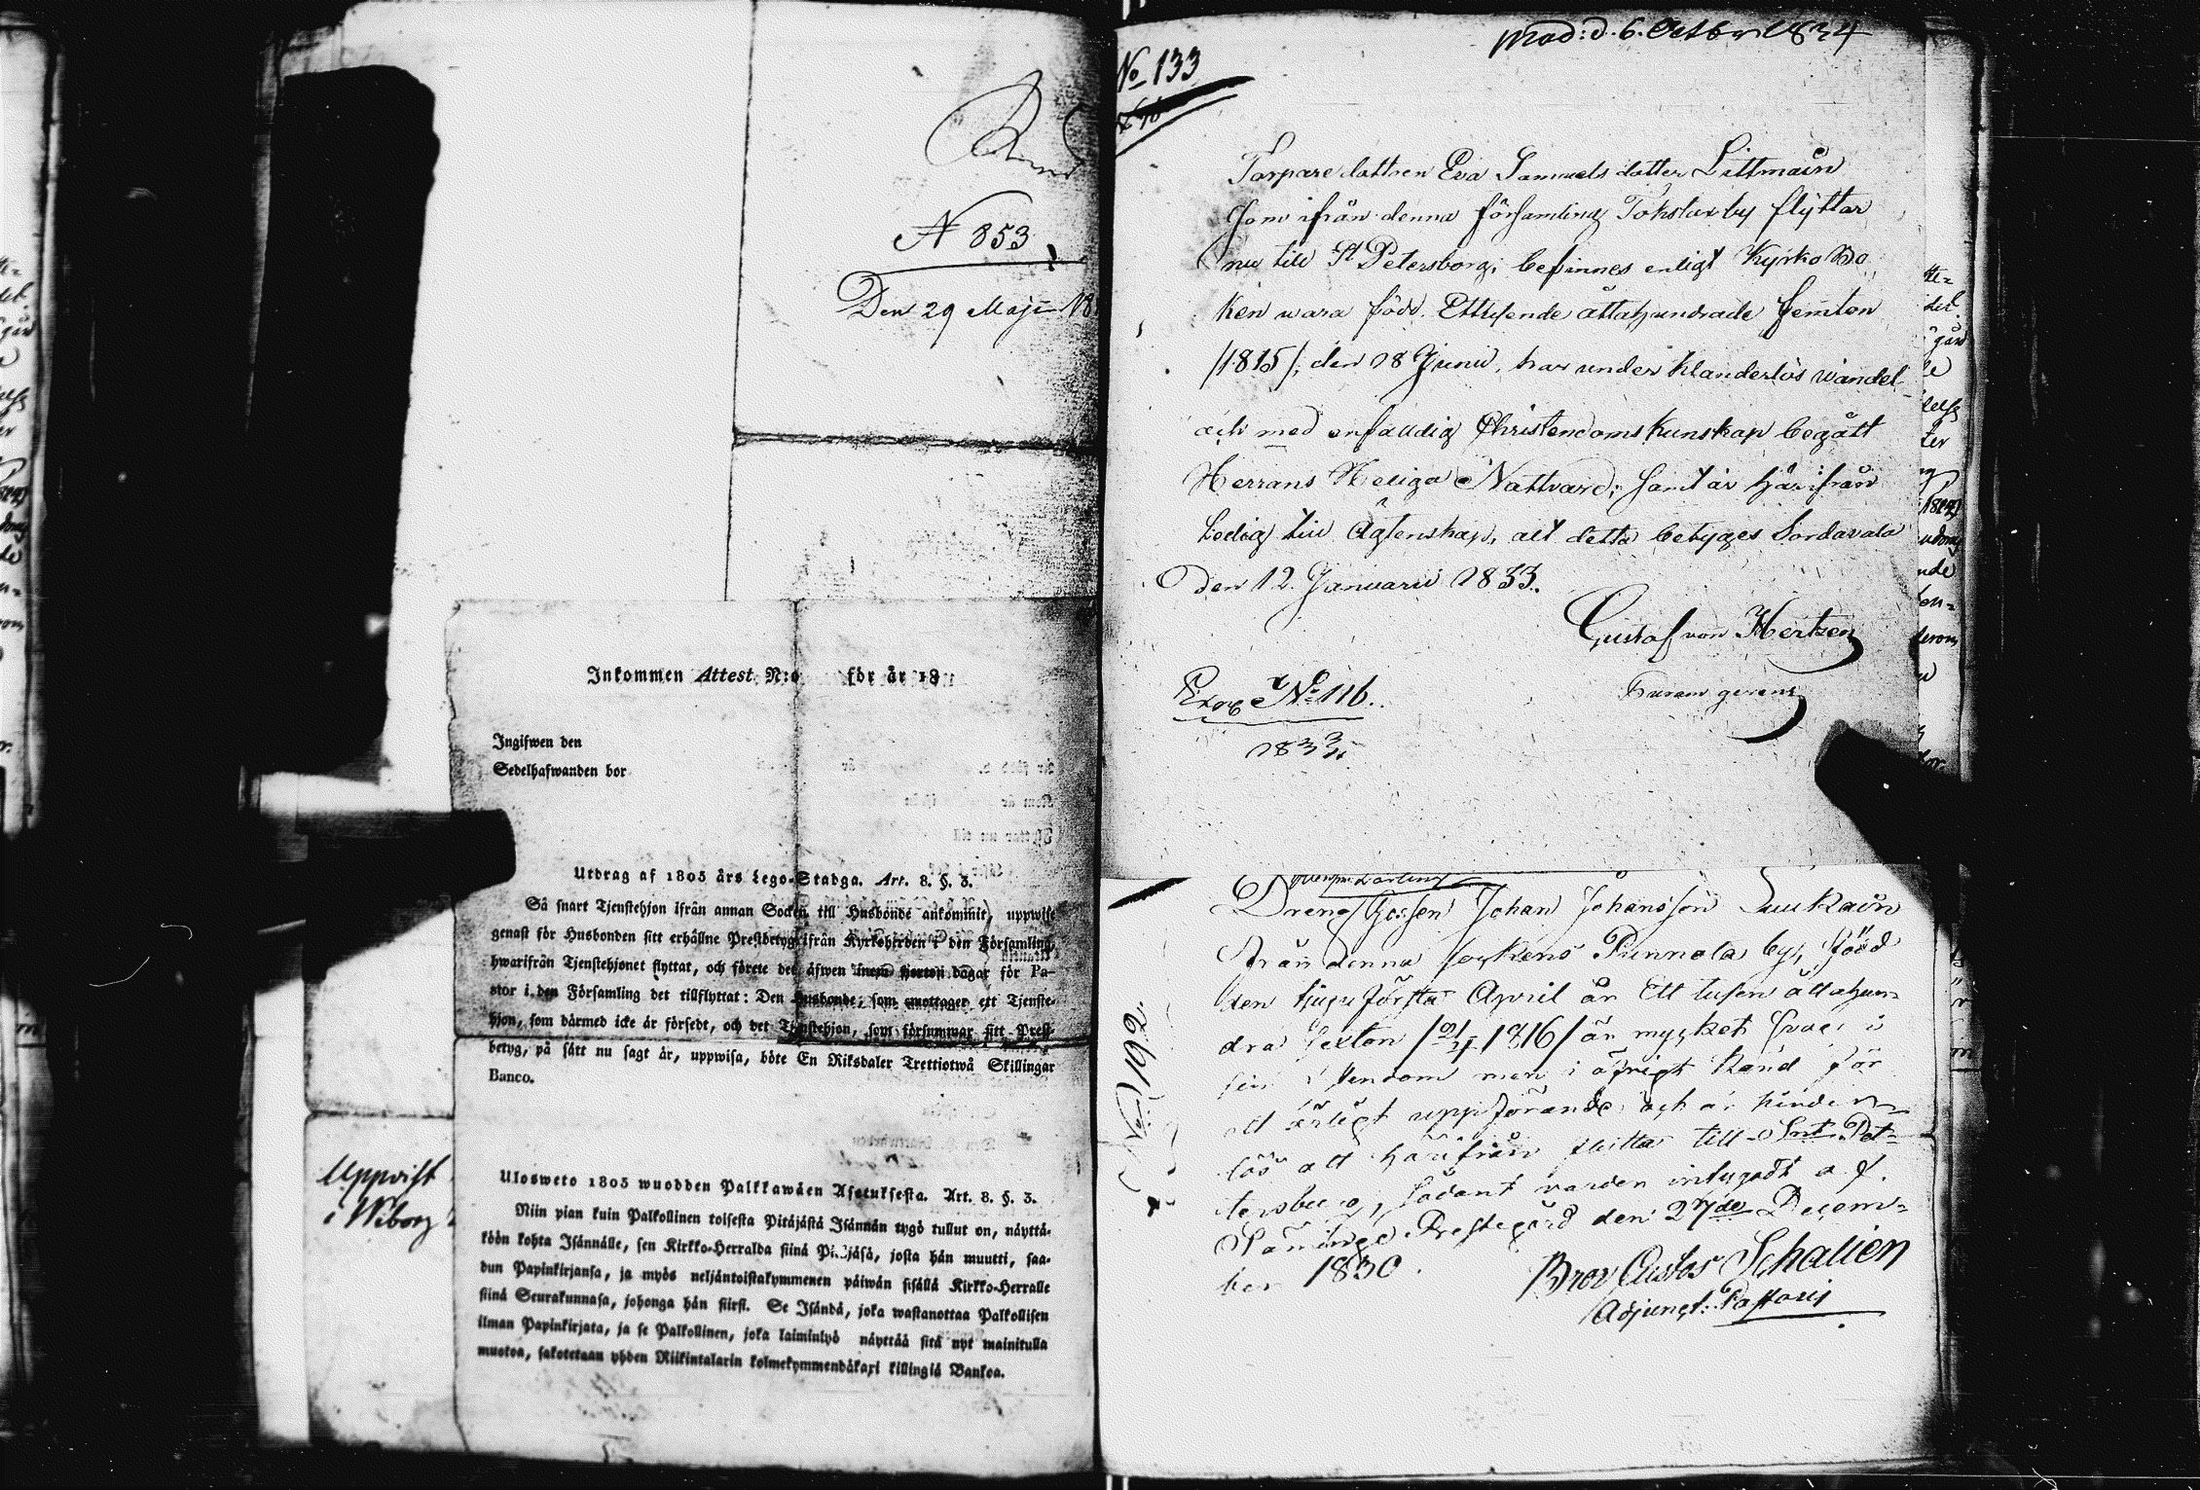 N 853
Den 29 Maji 18
Inkommen Attest N:o för år 18
Ingifwen den
Sedelhafwanden bor
Utdrag af 1805 års Lego-Stadga. Art. 8. §. 3.
Så snart Tjenstehjon ifrån annan Socken till Husbonde ankommit, uppwise
genast för Husbonden sitt erhållne Prestbetyg ifrån Kyrkoherden i den Församling,
hwarifrån Tjenstehjonet flyttat, och förete det äfwen inom fjorton dagar för Pa-
stor i den Församling det tillflyttat: Den Husbonde, som emottager ett Tjenste-
hjon, som därmed icke är försedt, och det Tjenstehjon, som försummar sitt Prest-
betyg, på sätt nu sagt är, uppwisa, böte En Riksdaler Trettiotwå Skillingar
Banco.
Uppvist
i Wiborg
Ulosweto 1805 wuodden Palkkawäen Asetuksesta. Art. 8. §. 3.
Niin pian kuin Palkollinen toisesta Pitäjästä Isännän tygö tullut on, näyttä-
köön kohta Isännälle, sen Kirkko-Herralda siinä Pitäjäsä, josta hän muutti, saa-
dun Papinkirjansa, ja myös neljäntoistakymmenen päiwän sisällä Kirkko-Herralle
siinä Seurakunnasa, johonga hän siirsi. Se Isändä, joka wastanottaa Palkollisen
ilman Papinkirjata, ja se Palkollinen, joka laiminlyö näyttää sitä nyt mainitulla
muotoa, sakotetaan yhden Riikintalarin kolmekymmendäkaxi killingiä Bankoa.
prod: d. 6. Octbr 1834
No 133
Torpare dottren Eva Samuels dotter Littmain
som ifrån denna församling Tokslax by flyttar
nu till St Petersborg; befinnes enligt Kyrko Bo
ken wara född Ettusende åttahundrade femton
/1815/, den 18 Junii, har under klanderlös wandel
och med enfaldig Christendoms kunskap begått
Herrans Heliga Nattvard; samt är härifrån
Ledig till Ägtenskap, alt detta betyges Sordavala
Den 12 Januarii 1833.
Gustaf von Hertzen
Curam gerens
No 116.
1833
Dreng Gossen Johan Johansson Suukain
från denna sockens Punnola by, född
den tjugu första April år Ett tusen åttahun-
dra sexton /21/4 1816/ är mycket svag i
sin men i öfrigt känd för
ett ärligt uppförande och är hinder
lös att härifrån flytta till Snt Pet-
tersburg, sådant warder intygadt af.
Säminge Prestegård den 27de Decem-
ber 1830.
Schalien
Adjunct: Pastoris
192